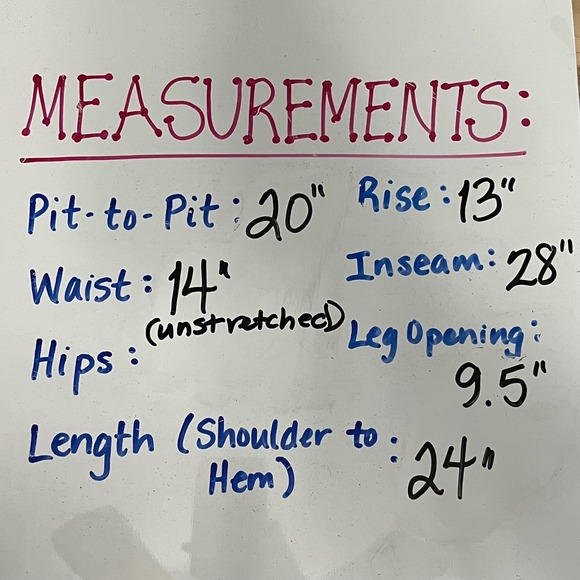 MEASUREMENTS:
Pit-to-Pit: 20"
Waist: 14"
(unstretched)
Hips:
Length (Shoulder to
Hem): 24"
Rise: 13"
Inseam: 28"
Leg Opening:
9.5"